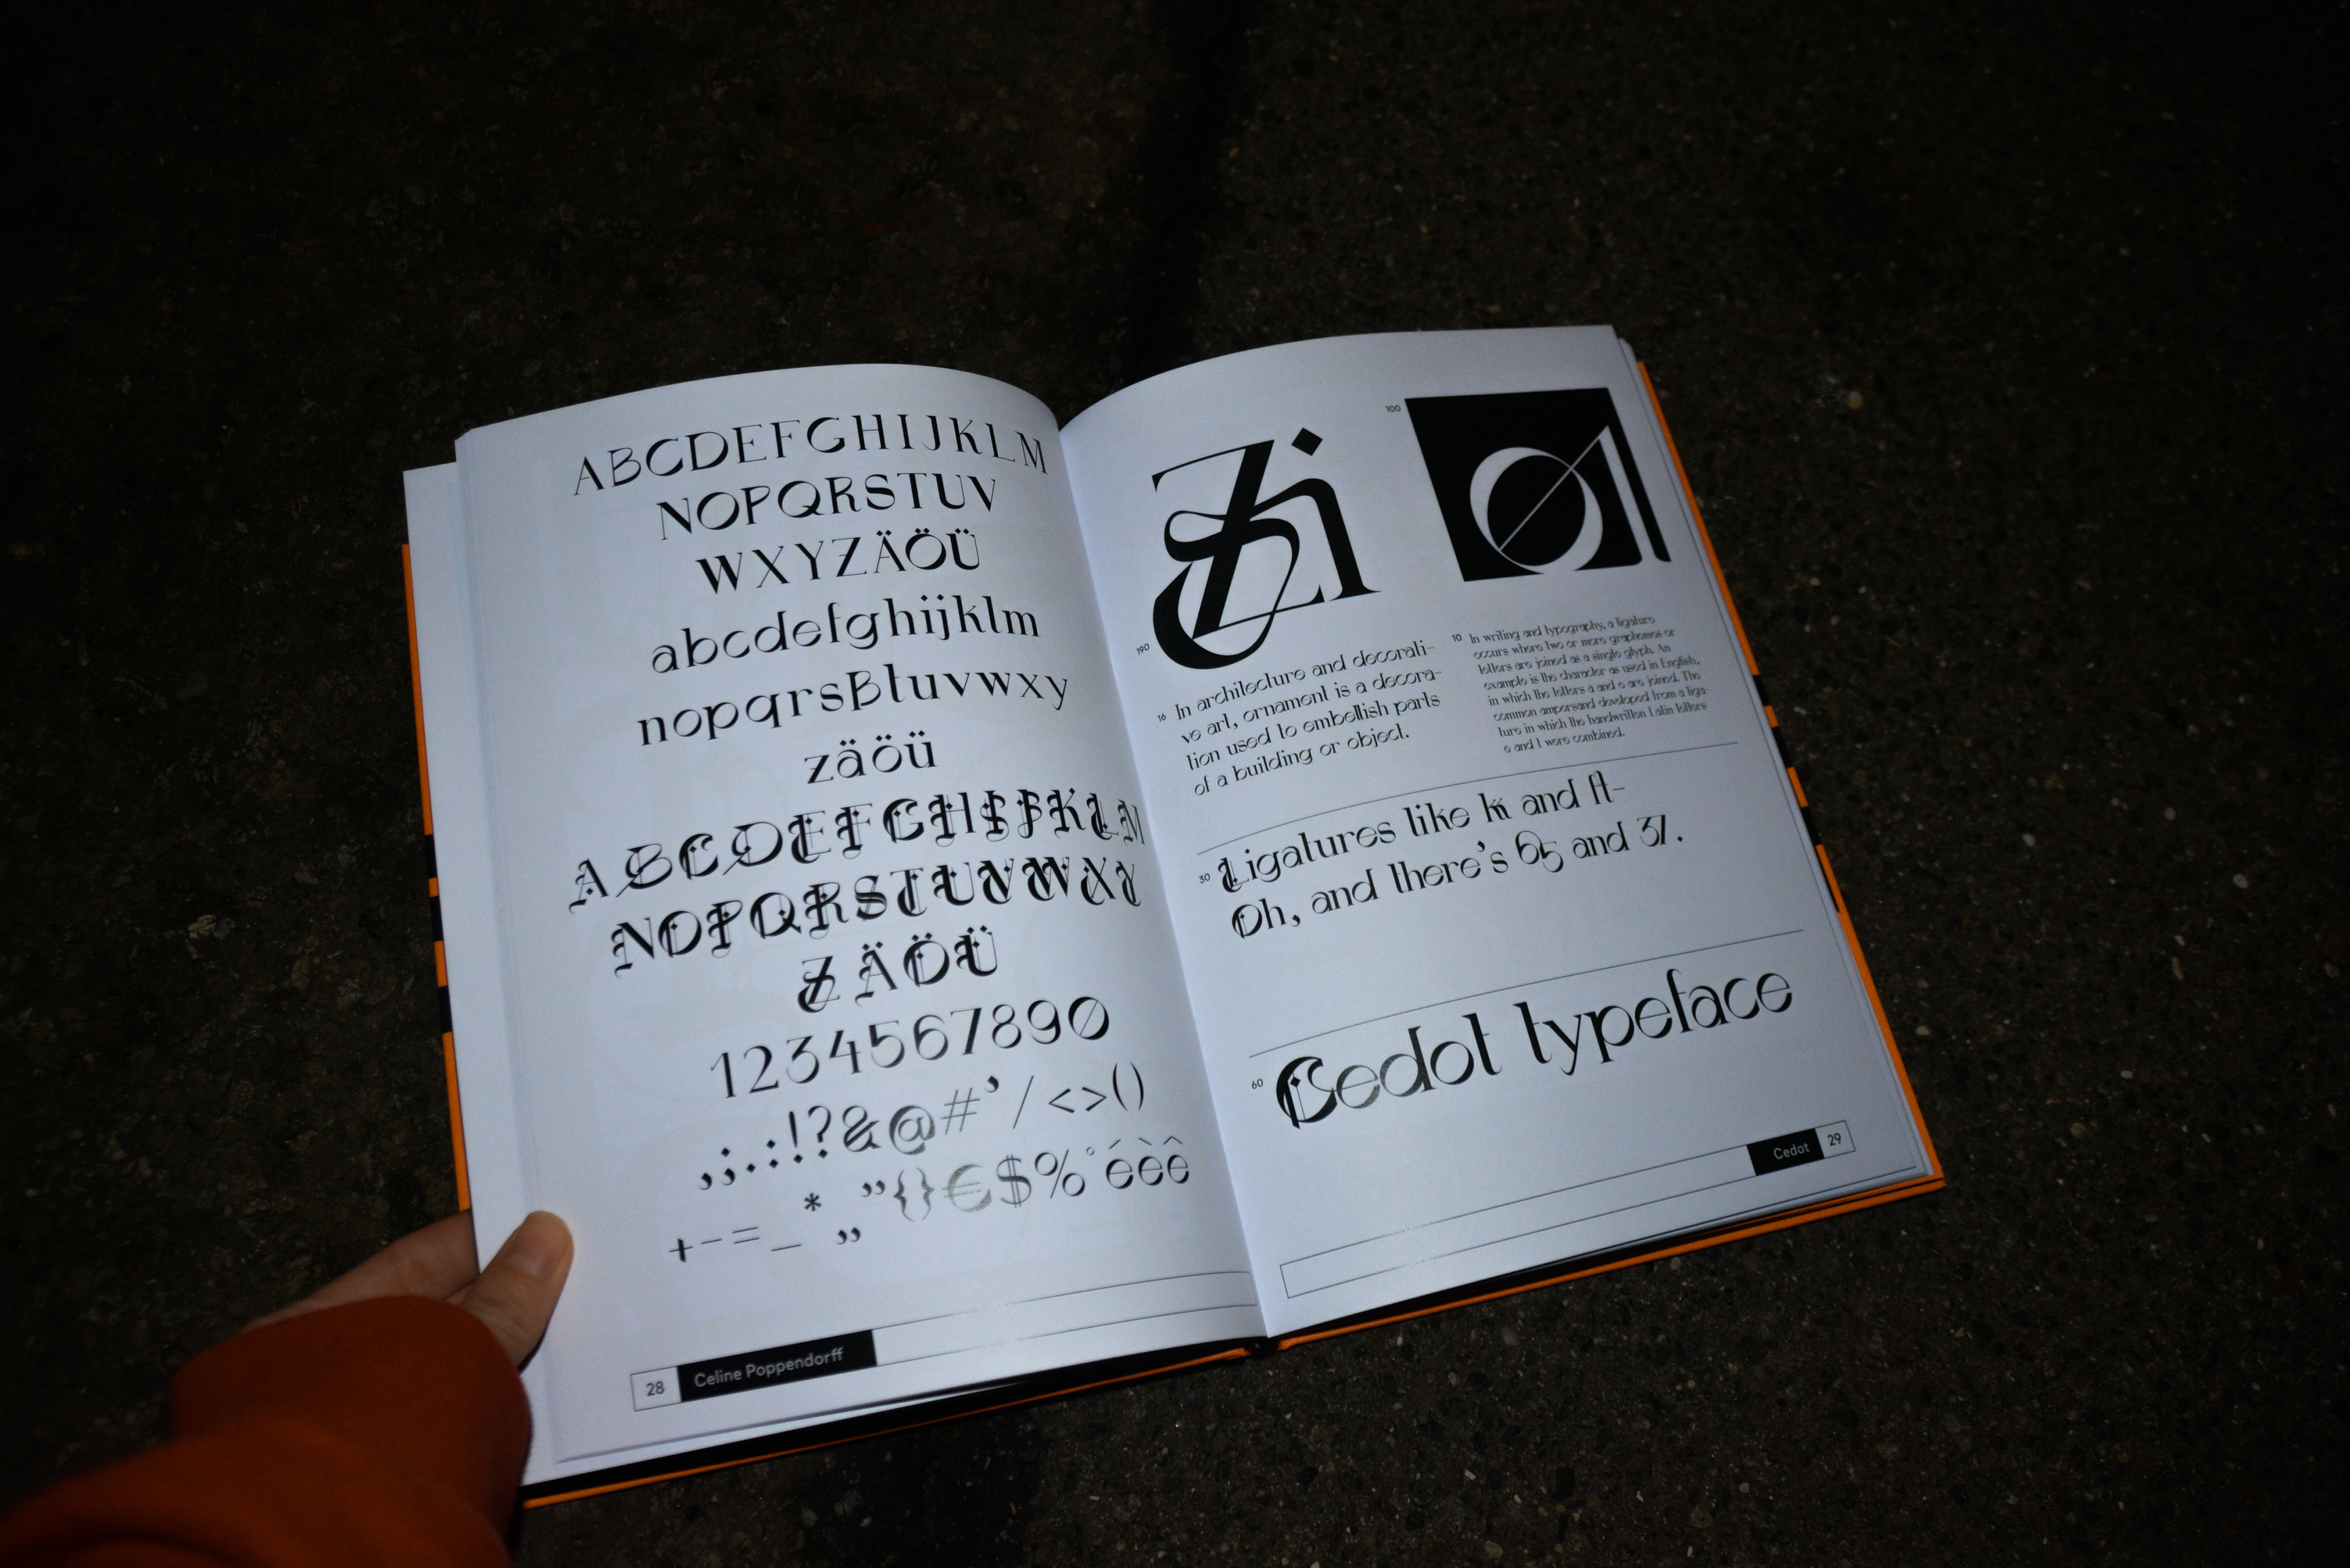 ABCDEFGHIJKLM
NOPQRSTUV
WXYZÄÖÜ
abcdefghijklm
nopqrsßtuvwxy
zäöü
ABCDEFGHIJKLM
NOPQRSTUVWXY
ZÄÖÜ
1234567890
,;.:!?&@#’/<>()
+-=_*„”{}€$%°éèê
28 Celine Poppendorff
190 Zi
100
16 In architecture and decorati-
ve art, ornament is a decora-
tion used to embellish parts
of a building or object.
10 In writing and typography, a ligature
occurs where two or more graphemes or
letters are joined as a single glyph. An
example is the character æ used in English,
in which the letters a and e are joined. The
common ampersand developed from a liga-
ture in which the handwritten Latin letters
e and t were combined.
30 Ligatures like and ft-
Oh, and there’s 65 and 37.
60 Cedot typeface
Cedot 29